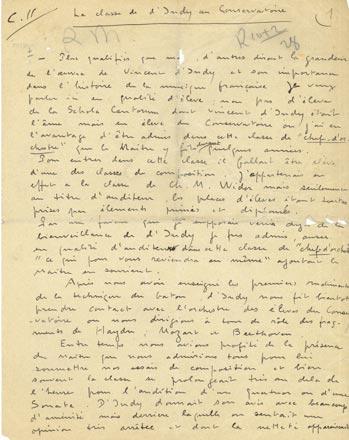 C.11 La classe de d'Indy au Conservatoire 1
2 M
1 — Plus qualifiés que moi, d'autres diront la grandeur
de l'œuvre de Vincent d'Indy et son importance
dans l'histoire de la musique française. Je veux
parler ici en qualité d'élève, non pas d'élève
de la Schola Cantorum dont Vincent d'Indy était
l'âme mais en élève du Conservatoire où j'ai eu
l'avantage d'être admis dans cette classe de "chef d'or
chestre" que le Maître y fit quelques années.
Pour entrer dans cette classe il fallait être élève
d'une des classes de composition. J'appartenais en
effet à la classe de Ch. M. Widor mais seulement
au titre d'auditeur, les places d'élèves étant toutes
prises par éléments primés et diplômés.
Par une faveur que je supposais venir déjà de la
bienveillance de d'Indy je fus admis, aussi
en qualité d'auditeur dans cette classe de "chef d'orchestre"
"ce qui pour vous reviendra au même" ajoutait le
Maître en souriant.
Après nous avoir enseigné les premiers rudiments
de la technique du bâton, d'Indy nous fit bientôt
prendre contact avec l'orchestre des élèves du Conser-
vatoire où nous dirigions à tour de rôle des frag-
ments de Haydn, Mozart et Beethoven
Entre temps nous avions profité de la présence
du Maître que nous admirions tous pour lui
soumettre nos essais de composition et bien
souvent la classe se prolongeait très au delà de
l'heure pour l'audition d'un Quatuor ou d'une
Sonate. D'Indy donnait son avis avec beaucoup
d'aménité mais derrière laquelle on sentait une
opinion très arrêtée et dont la netteté apparaissait